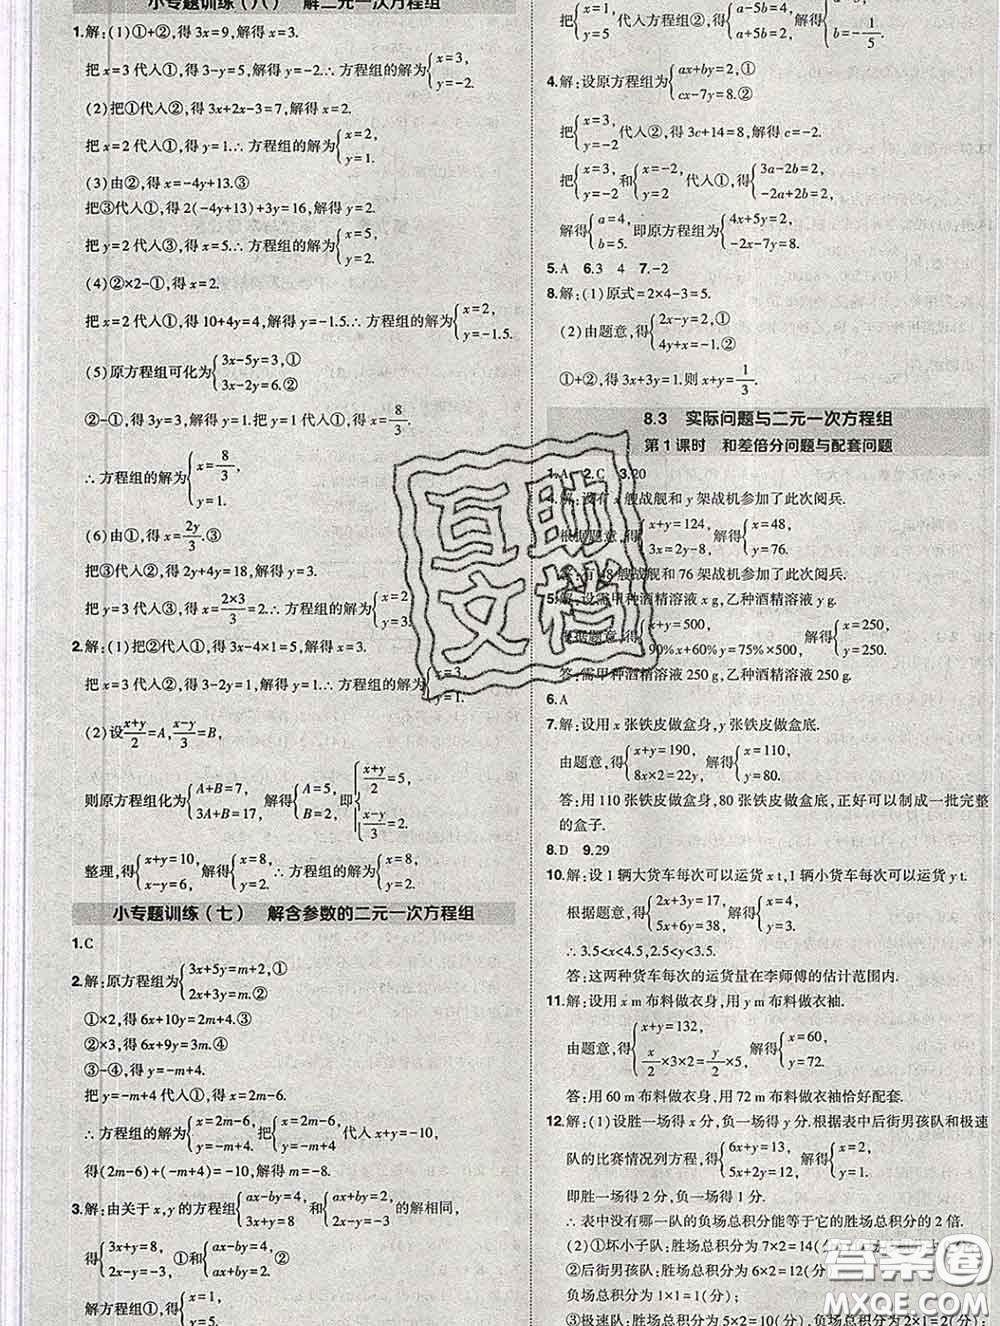 小专题训练(六) 解二元一次方程组
1.解:(1)①+②,得 3x=9,解得 x=3.
把 x=3 代入①,得 3-y=5,解得 y=-2.∴ 方程组的解为{x=3, y=-2.
(2)把①代入②,得 3x+2x-3=7,解得 x=2.
把 x=2 代入①,得 y=1.∴ 方程组的解为{x=2, y=1.
(3)由②,得 x=-4y+13.③
把③代入①,得 2(-4y+13)+3y=16,解得 y=2.
把 y=2 代入③,得 x=5.∴ 方程组的解为{x=5, y=2.
(4)②×2-①,得 x=2.
把 x=2 代入①,得 10+4y=4,解得 y=-1.5.∴ 方程组的解为{x=2, y=-1.5.
(5)原方程组可化为{3x-5y=3,① 3x-2y=6.②
②-①,得 3y=3,解得 y=1.把 y=1 代入①,得 x=8/3.
∴ 方程组的解为{x=8/3, y=1.
(6)由①,得 x=2y/3.③
把③代入②,得 2y+4y=18,解得 y=3.
把 y=3 代入③,得 x=2×3/3=2.∴ 方程组的解为{x=2 y=3.
2.解:(1)把②代入①,得 3x-4×1=5,解得 x=3.
把 x=3 代入②,得 3-2y=1,解得 y=1. x=3, y=1.
(2)设x+y/2=A,x-y/3=B,
则原方程组化为{A+B=7, 3A+B=17, 解得{A=5, B=2, 即{x+y/2=5, x-y/3=2.
整理,得{x+y=10, x-y=6. 解得{x=8, y=2. ∴ 方程组的解为{x=8, y=2.
小专题训练(七) 解含参数的二元一次方程组
1.C
2.解:原方程组为{3x+5y=m+2,① 2x+3y=m.②
①×2,得 6x+10y=2m+4.③
②×3,得 6x+9y=3m.④
③-④,得 y=-m+4.
把 y=-m+4 代入①,得 x=2m-6.
∴ 方程组的解为{x=2m-6, y=-m+4. 把{x=2m-6, y=-m+4 代入 x+y=-10,
得(2m-6)+(-m+4)=-10,解得 m=-8.
3.解:由关于 x,y 的方程组{ax-by=4, 3x+y=8 和{ax+by=4, 2x-y=-3 的解相同,
得{3x+y=8, 2x-y=-3 ①和{ax-by=4, ax+by=4. ②
解方程组①,得{x=1, y=5.
把{x=1, y=5 代入方程组②,得
4.解:设原方程组为{ax+by=2,① cx-7y=8.②
把{x=3, y=-2 代入②,得 3c+14=8,解得 c=-2.
把{x=3, y=-2 和{x=-2, y=2 代入①,得{3a-2b=2, -2a+2b=2.
解得{a=4, b=5. 即原方程组为{4x+5y=2, -2x-7y=8.
5.A 6.3 4 7.-2
8.解:(1)原式=2×4-3=5.
(2)由题意,得{2x-y=2,① 4y+x=-1.②
①+②,得 3x+3y=1.则 x+y=1/3.
8.3 实际问题与二元一次方程组
第 1 课时 和差倍分问题与配套问题
1.A 2.C 3.20
4.解:设有 x 艘战舰和 y 架战机参加了此次阅兵.
根据题意,得{x+y=124, 3x=2y-8, 解得{x=48, y=76.
答:有 48 艘战舰和 76 架战机参加了此次阅兵.
5.解:设需甲种酒精溶液 x g,乙种酒精溶液 y g.
根据题意,得{x+y=500, 60%x+90%y=75%×500, 解得{x=250, y=250.
答:需甲种酒精溶液 250 g,乙种酒精溶液 250 g.
6.A
7.解:设用 x 张铁皮做盒身,y 张铁皮做盒底.
由题意,得{x+y=190, 8x×2=22y, 解得{x=110, y=80.
答:用 110 张铁皮做盒身,80 张铁皮做盒底,正好可以制成一批完整
的盒子.
8.D 9.29
10.解:设 1 辆大货车每次可以运货 x t,1 辆小货车每次可以运货 y t.
根据题意,得{2x+3y=17, 5x+6y=38, 解得{x=4, y=3.
∴ 3.5<x<4.5,2.5<y<3.5.
答:这两种货车每次的运货量在李师傅的估计范围内.
11.解:设用 x m 布料做衣身,用 y m 布料做衣袖.
由题意,得{x+y=132, x/2×3×2=y/2×5, 解得{x=60, y=72.
答:用 60 m 布料做衣身,用 72 m 布料做衣袖恰好配套.
12.解:(1)设胜一场得 x 分,负一场得 y 分.根据表中后街男孩队和极速
队的比赛情况列方程,得{6x+y=13, 5x+2y=12, 解得{x=2, y=1.
即胜一场得 2 分,负一场得 1 分.
∴ 表中没有哪一队的负场总积分能等于它的胜场总积分的 2 倍.
(2)①坏小子队:胜场总积分为 7×2=14(分),
②后街男孩队:胜场总积分为 6×2=12(分),
负场总积分为 1×1=1(分);
③极速队:胜场总积分为 5×2=10(分),负场总积分为
互助
文档
答案圈
MXQE.COM